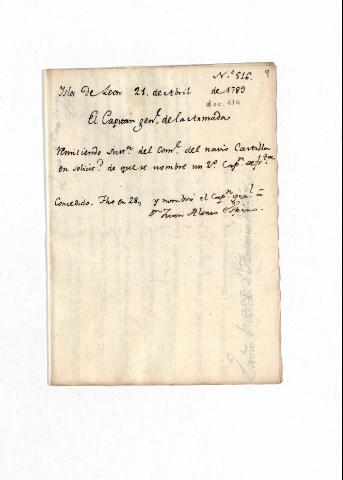 N.º 516. 9
Isla De Leon 21. de Abril de 1789
doc. 114
El Capitan gen.l de la Armada
Remitiendo Inst.a del Com.te del navio Castilla
en solicit.d de que se nombre un 2.º Cap.n de
Concedido. Fho en 28, y nombró el Cap.n gral á
D.n Juan Alonso Espino.